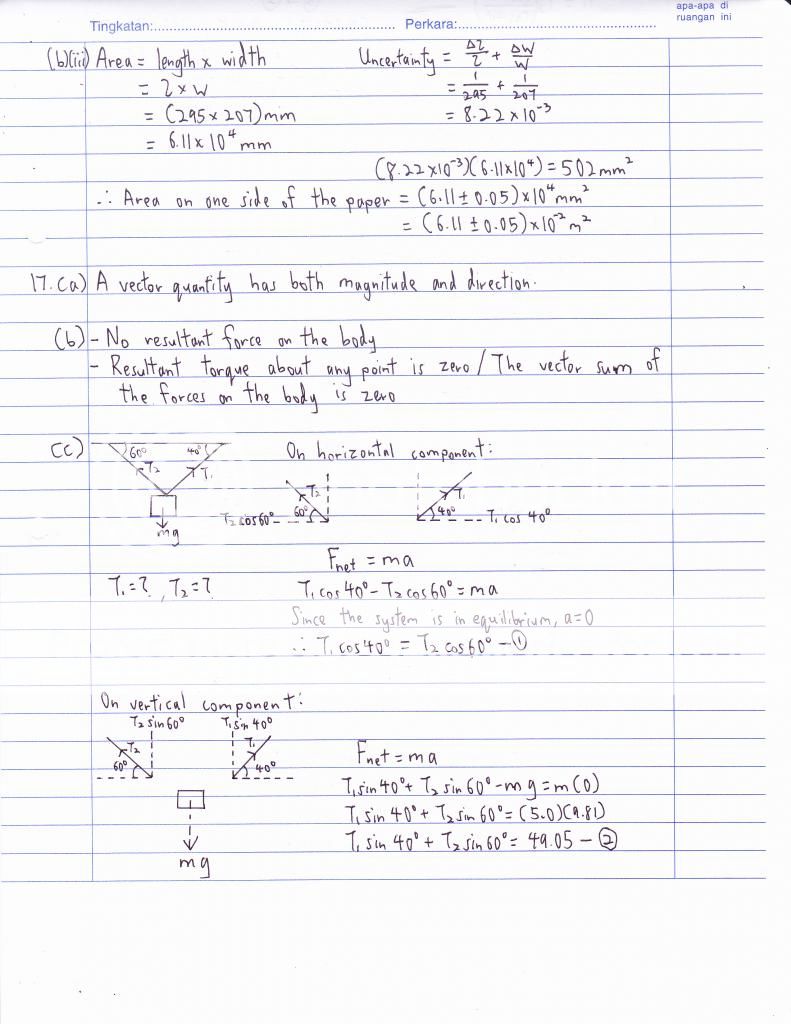 apa-apa di
ruangan ini
Tingkatan:
Perkara:
(b)(iii) Area = length x width
= l x w
= (295 x 207) mm
= 6.11 x 10⁴ mm
Uncertainty = Δl/l + Δw/w
= 1/295 + 1/207
= 8.22 x 10⁻³
(8.22 x 10⁻³)(6.11 x 10⁴) = 502 mm²
∴ Area on one side of the paper = (6.11 ± 0.05) x 10⁴ mm²
= (6.11 ± 0.05) x 10⁻² m²
17. (a) A vector quantity has both magnitude and direction.
(b) - No resultant force on the body
- Resultant torque about any point is zero / The vector sum of
the forces on the body is zero
(c)
60° 40°
T₂ T₁
mg
On horizontal component:
T₂
T₂ cos 60° 60°
T₁
40° T₁ cos 40°
Fnet = ma
T₁ = ?, T₂ = ?
T₁ cos 40° - T₂ cos 60° = ma
Since the system is in equilibrium, a = 0
∴ T₁ cos 40° = T₂ cos 60° - ①
On vertical component:
T₂ sin 60° T₁ sin 40°
T₂ T₁
60° 40°
mg
Fnet = ma
T₁ sin 40° + T₂ sin 60° - mg = m(0)
T₁ sin 40° + T₂ sin 60° = (5.0)(9.81)
T₁ sin 40° + T₂ sin 60° = 49.05 - ②